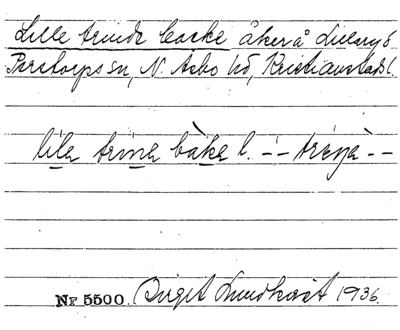 Lille trinde backe åker å Lillaryd
Perstorps sn, N. Åsbo hd, Kristianstads l.
lila trina bàka l. -- -- --
Nr 5500. Birgit Lundkvist 1936.